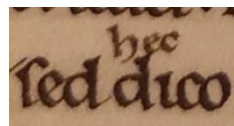 hec
sed dico